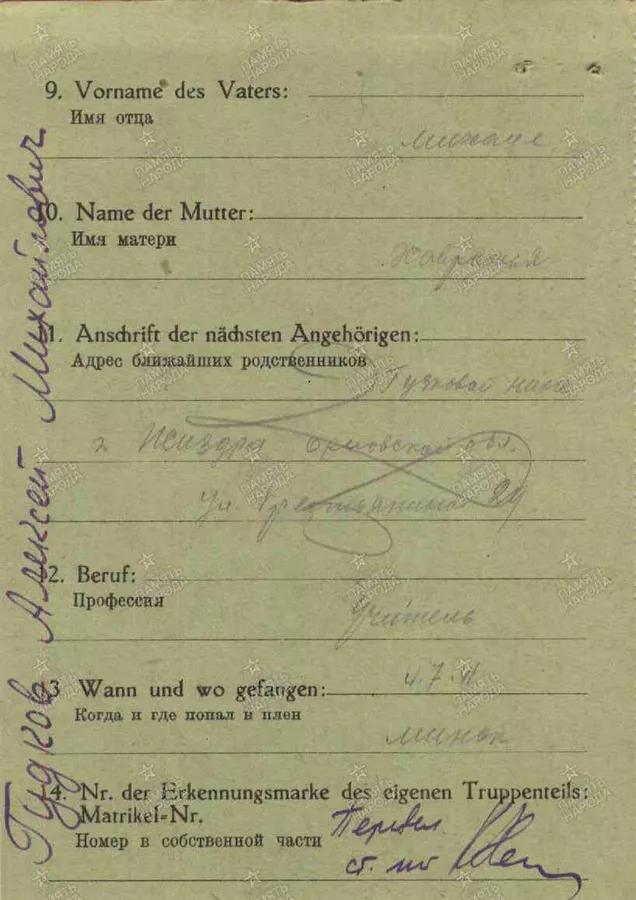 9. Vorname des Vaters:
Имя отца
Михаил
10. Name der Mutter:
Имя матери
11. Anschrift der nächsten Angehörigen:
Адрес ближайших родственников
г Жиздра Орловской обл.
ул.
12. Beruf:
Профессия
Учитель
13 Wann und wo gefangen:
4.7.41
Когда и где попал в плен
Минск
14. Nr. der Erkennungsmarke des eigenen Truppenteils:
Matrikel-Nr.
Номер в собственной части
Перевел
Гудков Алексей Михайлович
ПАМЯТЬ НАРОДА